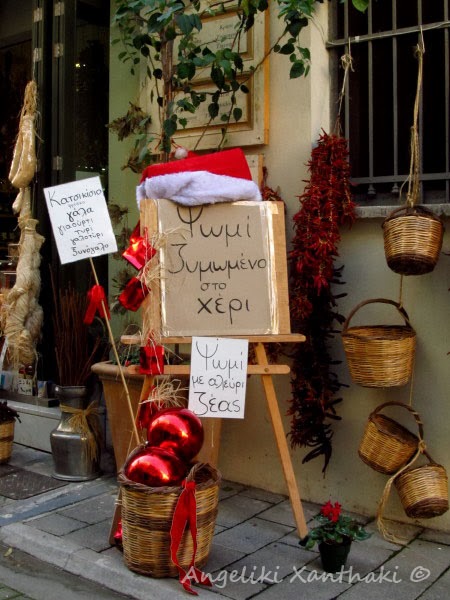 Κατσικίσιο
γάλα
γιαούρτι
τυρί
γαλοτύρι
ξυνόγαλο
Ψωμί
Ζυμωμένο
στο
χέρι
Ψωμί
με αλεύρι
Ζέας
Angeliki Xanthaki ©